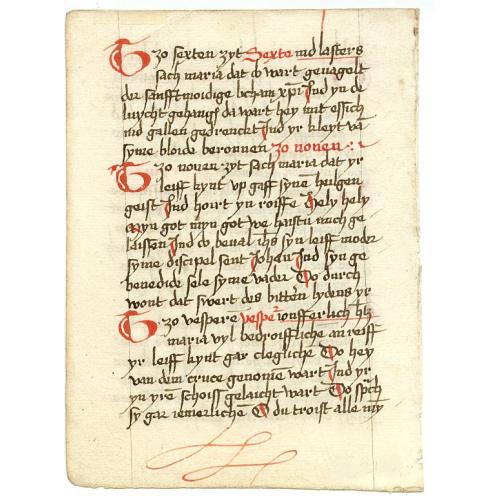 Zo sexten zyt Sexte ind lasters
sach maria dat wart genagelt
der sanfftmoidige licham xpi Ind yn de
luycht gehangē da wart hey mit essich
ind gallen gedrenckt Ind yr kleyt vā
syme bloide beronnen zo nonen
Zo nonen zyt sach maria dat yr
leiff kynt vp gaff synē heilgen
geist Ind hoirt yn roiffe hely hely
myn got myn got we haistu mich ge
laissen Ind beual ihs syn leiff moder
syme discipel sent Johan Ind syn ge
benedide sele syme vader Do durch
wont dat swert des bittern lydens yr
Zo vespere vesper ionfferlich htz
maria vyl bedroiffliche an reiff
yr leiff kynt gar cleglichē Do hey
van dem cruce genomē wart Ind yr
yn yrē schoiss gelaicht wart Do sprach
sy gar iemerlichē O du troist alle my